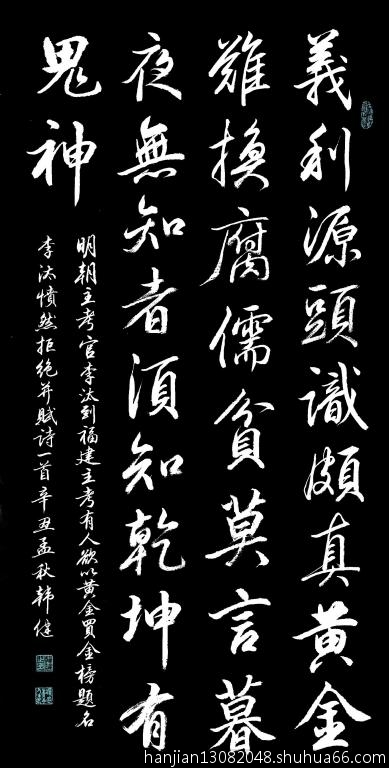 義利源頭識頗真黄金
難換腐儒貧莫言暮
夜無知者須知乾坤有
鬼神
明朝主考官李汰到福建主考有人欲以黄金買金榜題名
李汰憤然拒絶并賦詩一首辛丑孟秋韩健
hanjian13082048.shuhua66.com